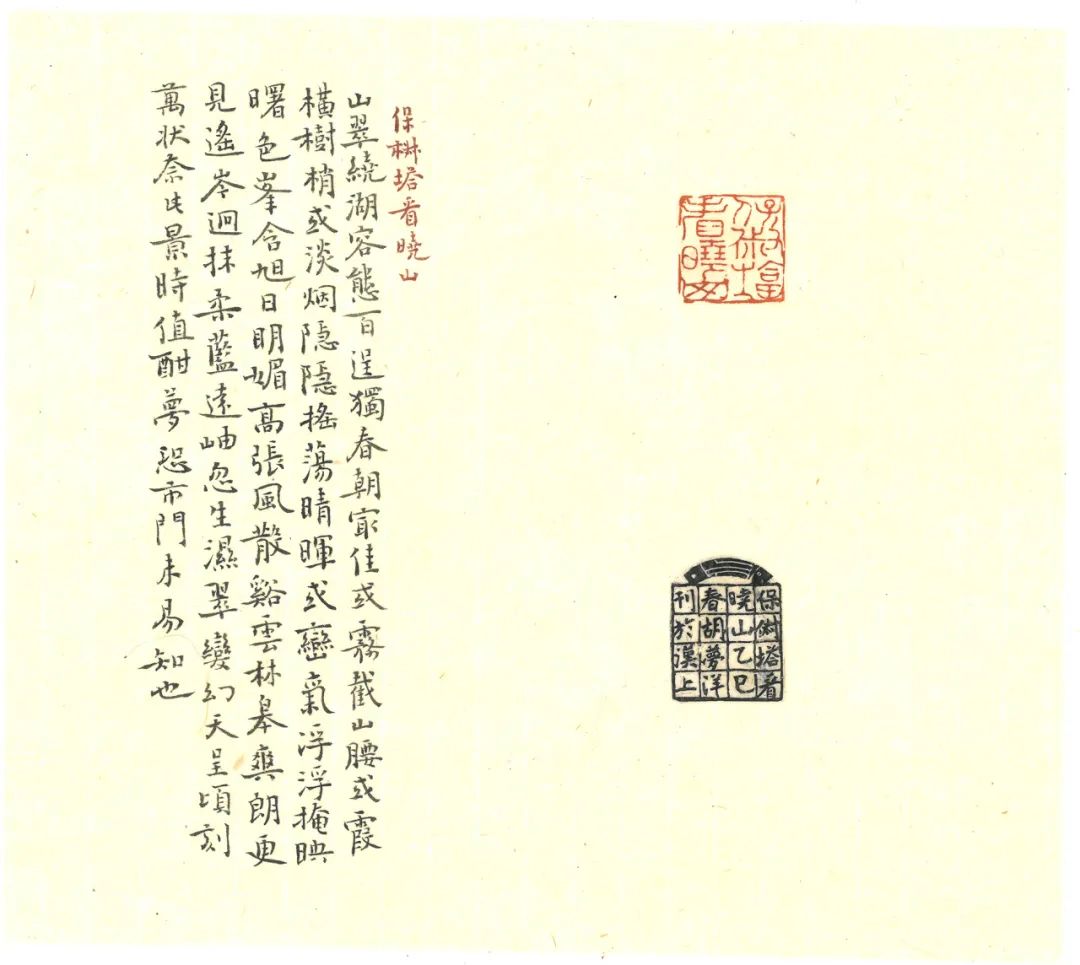 保俶塔
看曉山
保俶塔看
曉山乙巳
春胡夢洋
刊於漢上
保俶塔看曉山
山翠繞湖容態百逞獨春朝冣佳或霧截山腰或霞
橫樹梢或淡烟隱隱搖蕩晴暉或巒氣浮浮掩映
曙色峯含旭日明媚高張風散谿雲林皋爽朗更
見遙岑迥抹柔藍遠岫忽生濕翠變幻天呈頃刻
萬狀奈此景時值酣夢恐市門未易知也